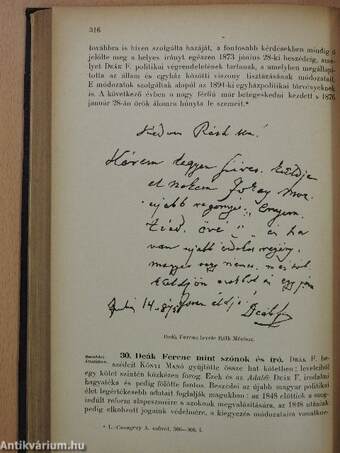 316
továbbra is híven szolgálta hazáját, a fontosabb kérdésekben mindig ő
jelölte meg a helyes irányt egészen 1873 június 28-ki beszédéig, ame-
lyet DEÁK F. politikai végrendeletének tartanak, a amelyben megállapí-
totta az állam és egyház közötti viszony tisztázásának módozatait.
E módozatok szolgáltak alapúl az 1894-ki egyházpolitikai törvényeknek
is. A következő évben a nagy férfiú már betegeskedni kezdett s 1876
január 28-án örök álomra húnyta le szemeit.*
Kedves Ráth Mór!
Kérem legyen szíves küldje
el nekem Jókay Mór
újabb regényeit
és ha
van újabb
magyar vagy német
Deák F
Deák Ferenc levele Ráth Mórhoz.
30. Deák Ferenc mint szónok és író. DEÁK F. be-
szédeit KÓNYI MANÓ gyűjtötte össze hat kötetben; leveleiből
egy kötet szintén közkézen forog. Ezek és az Adalék DEÁK F. irodalmi
hagyatéka és pedig fölötte fontos. Beszédei az újabb magyar politikai
élet legértékesebb adatait foglalják magukban: az 1848 előttiek a meg-
indúlt reform alapeszméire s azoknak megvalósítására, az 1848 utániak
pedig elkobzott jogaink védelmére, a kiegyezés módozataira vonatkoz-
* L. Csengery A. művei, 306—308. l.
antikvárium.hu